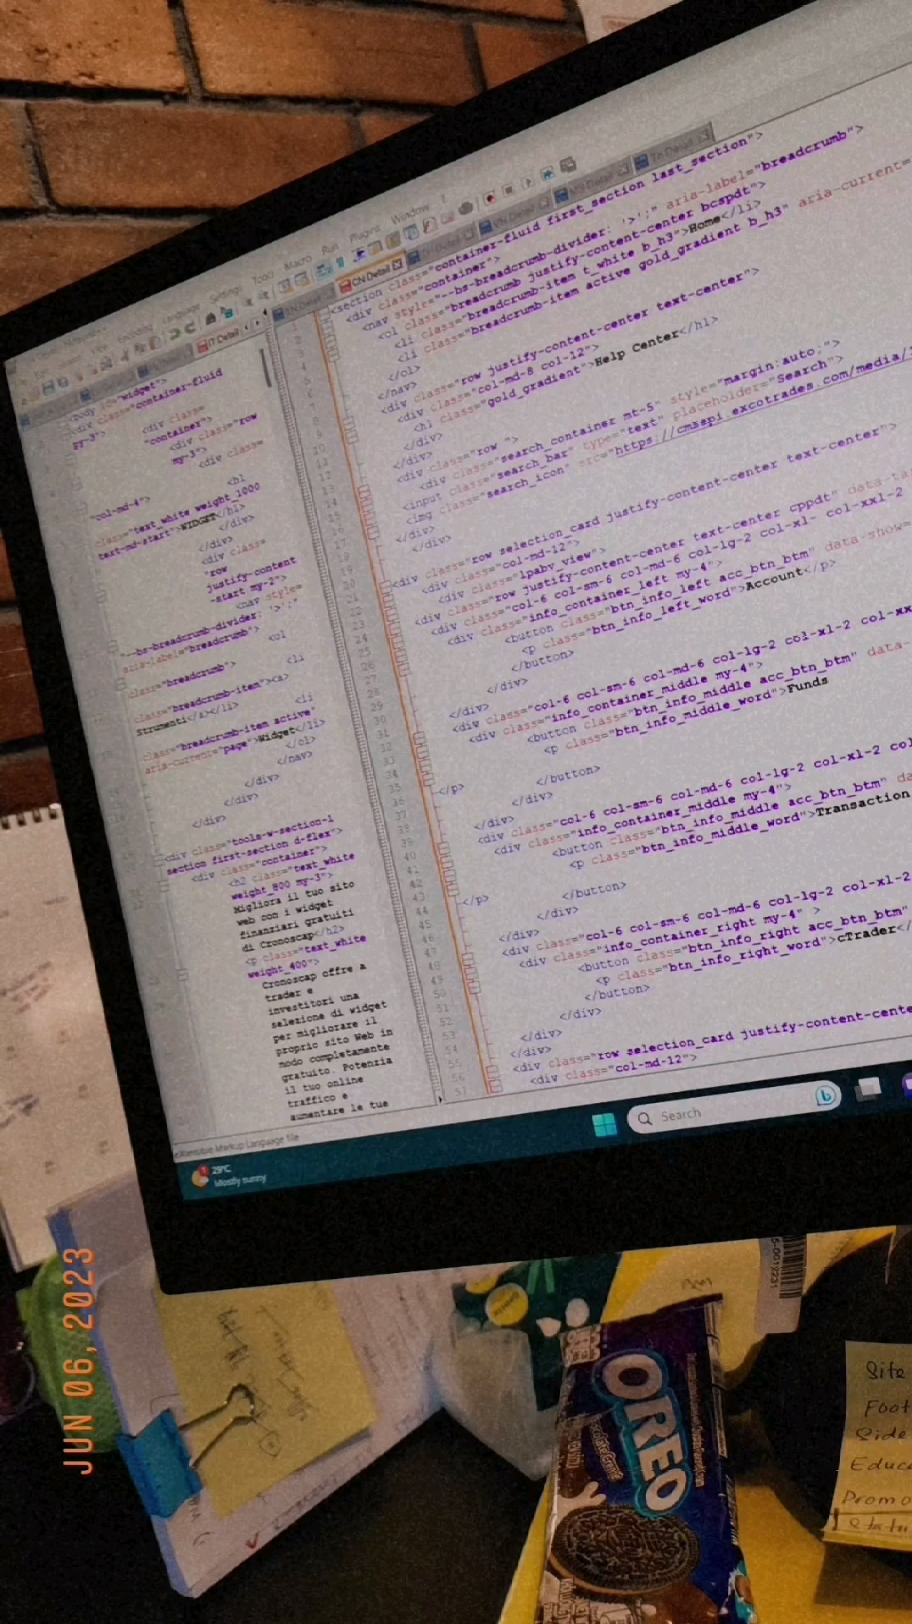 Settings
Tools
Macro
Run
Plugins
Window
?
IT Detail
CN Detail
<body id="widget">
<div class="container-fluid
py-3">
<div class=
"container">
<div class="row
my-3">
<div class=
"col-md-4">
<h1
class="text_white weight_1000
text-md-start">WIDGET</h1>
</div>
</div>
<div class=
"row
justify-content
-start my-2">
<nav style=
"--bs-breadcrumb-divider: '>';"
aria-label="breadcrumb">
<ol
class="breadcrumb">
<li
class="breadcrumb-item"><a>
Strumenti</a></li>
<li
class="breadcrumb-item active"
aria-current="page">Widget</li>
</ol>
</nav>
</div>
</div>
</div>
<div class="tools-w-section-1
section first-section d-flex">
<div class="container">
<h2 class="text_white
weight_800 my-3">
Migliora il tuo sito
web con i widget
finanziari gratuiti
di Cronoscap</h2>
<p class="text_white
weight_400">
Cronoscap offre a
trader e
investitori una
selezione di widget
per migliorare il
proprio sito Web in
modo completamente
gratuito. Potenzia
il tuo online
traffico e
aumentare le tue
<section class="container-fluid first_section last_section">
<div class="container">
<nav style="--bs-breadcrumb-divider: '>';" aria-label="breadcrumb">
<ol class="breadcrumb justify-content-center bcspdt">
<li class="breadcrumb-item t_white b_h3">Home</li>
<li class="breadcrumb-item active gold_gradient b_h3" aria-current=
</ol>
</nav>
<div class="row justify-content-center text-center">
<div class="col-md-8 col-12">
<h1 class="gold_gradient">Help Center</h1>
</div>
</div>
<div class="row ">
<div class="search_container mt-5" style="margin:auto;">
<input class="search_bar" type="text" placeholder="Search">
<img class="search_icon" src="https://cmsapi.excotrades.com/media/
</div>
</div>
<div class="row selection_card justify-content-center text-center">
<div class="col-md-12">
<div class="lpabv_view">
<div class="row justify-content-center text-center cppdt" data-ta
<div class="col-6 col-sm-6 col-md-6 col-lg-2 col-xl- col-xxl-2
<div class="info_container_left my-4">
<button class="btn_info_left acc_btn_btm" data-show=
<p class="btn_info_left_word">Account</p>
</button>
</div>
</div>
<div class="col-6 col-sm-6 col-md-6 col-lg-2 col-xl-2 col-xx
<div class="info_container_middle my-4">
<button class="btn_info_middle acc_btn_btm" data-
<p class="btn_info_middle_word">Funds
</p>
</button>
</div>
</div>
<div class="col-6 col-sm-6 col-md-6 col-lg-2 col-xl-2 col-x
<div class="info_container_middle my-4">
<button class="btn_info_middle acc_btn_btm" da
<p class="btn_info_middle_word">Transaction
</p>
</button>
</div>
</div>
<div class="col-6 col-sm-6 col-md-6 col-lg-2 col-xl-2
<div class="info_container_right my-4" >
<button class="btn_info_right acc_btn_btm"
<p class="btn_info_right_word">cTrader</
</button>
</div>
</div>
</div>
<div class="row selection_card justify-content-cente
<div class="col-md-12">
eXtensible Markup Language file
29°C
Mostly sunny
Search
JUN 06, 2023
OREO
Site
Foot
Side
Educa
Promo